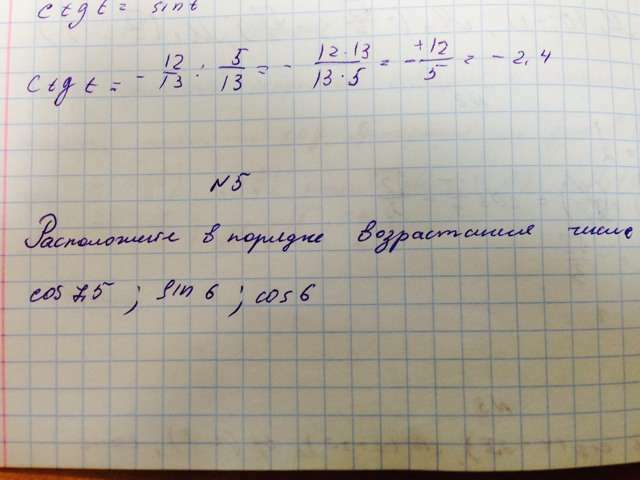 ctg t = sin t
ctg t = - 12/13 : 5/13 = - 12·13/13·5 = - +12/5 = - 2,4
N5
Расположите в порядке возрастания числа
cos 7,5 ; sin 6 ; cos 6